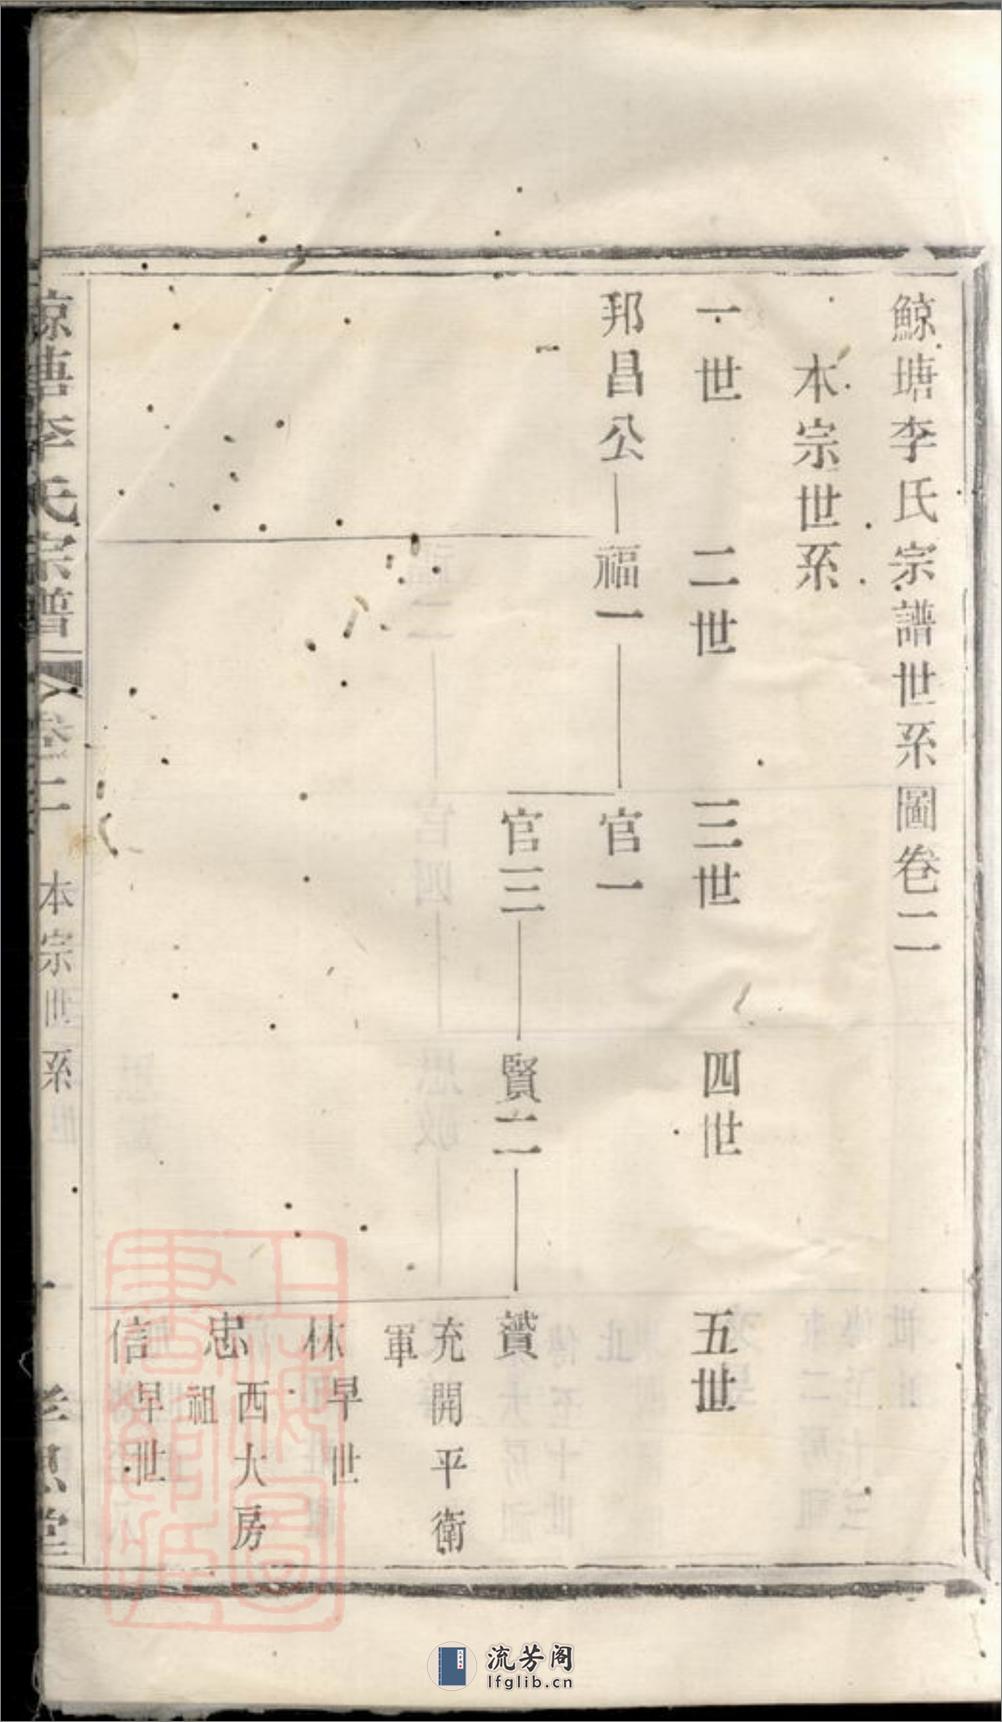 鯨塘李氏宗譜世系圖卷二
本宗世系
一世 二世 三世 四世 五世
邦昌公 福一 官一
官三 賢二 贇
充開平衛
軍
林早世
忠西大房
祖
信早世
鯨塘李氏宗譜 卷二 本宗世系 一 孝思堂
流芳阁
lfglib.cn